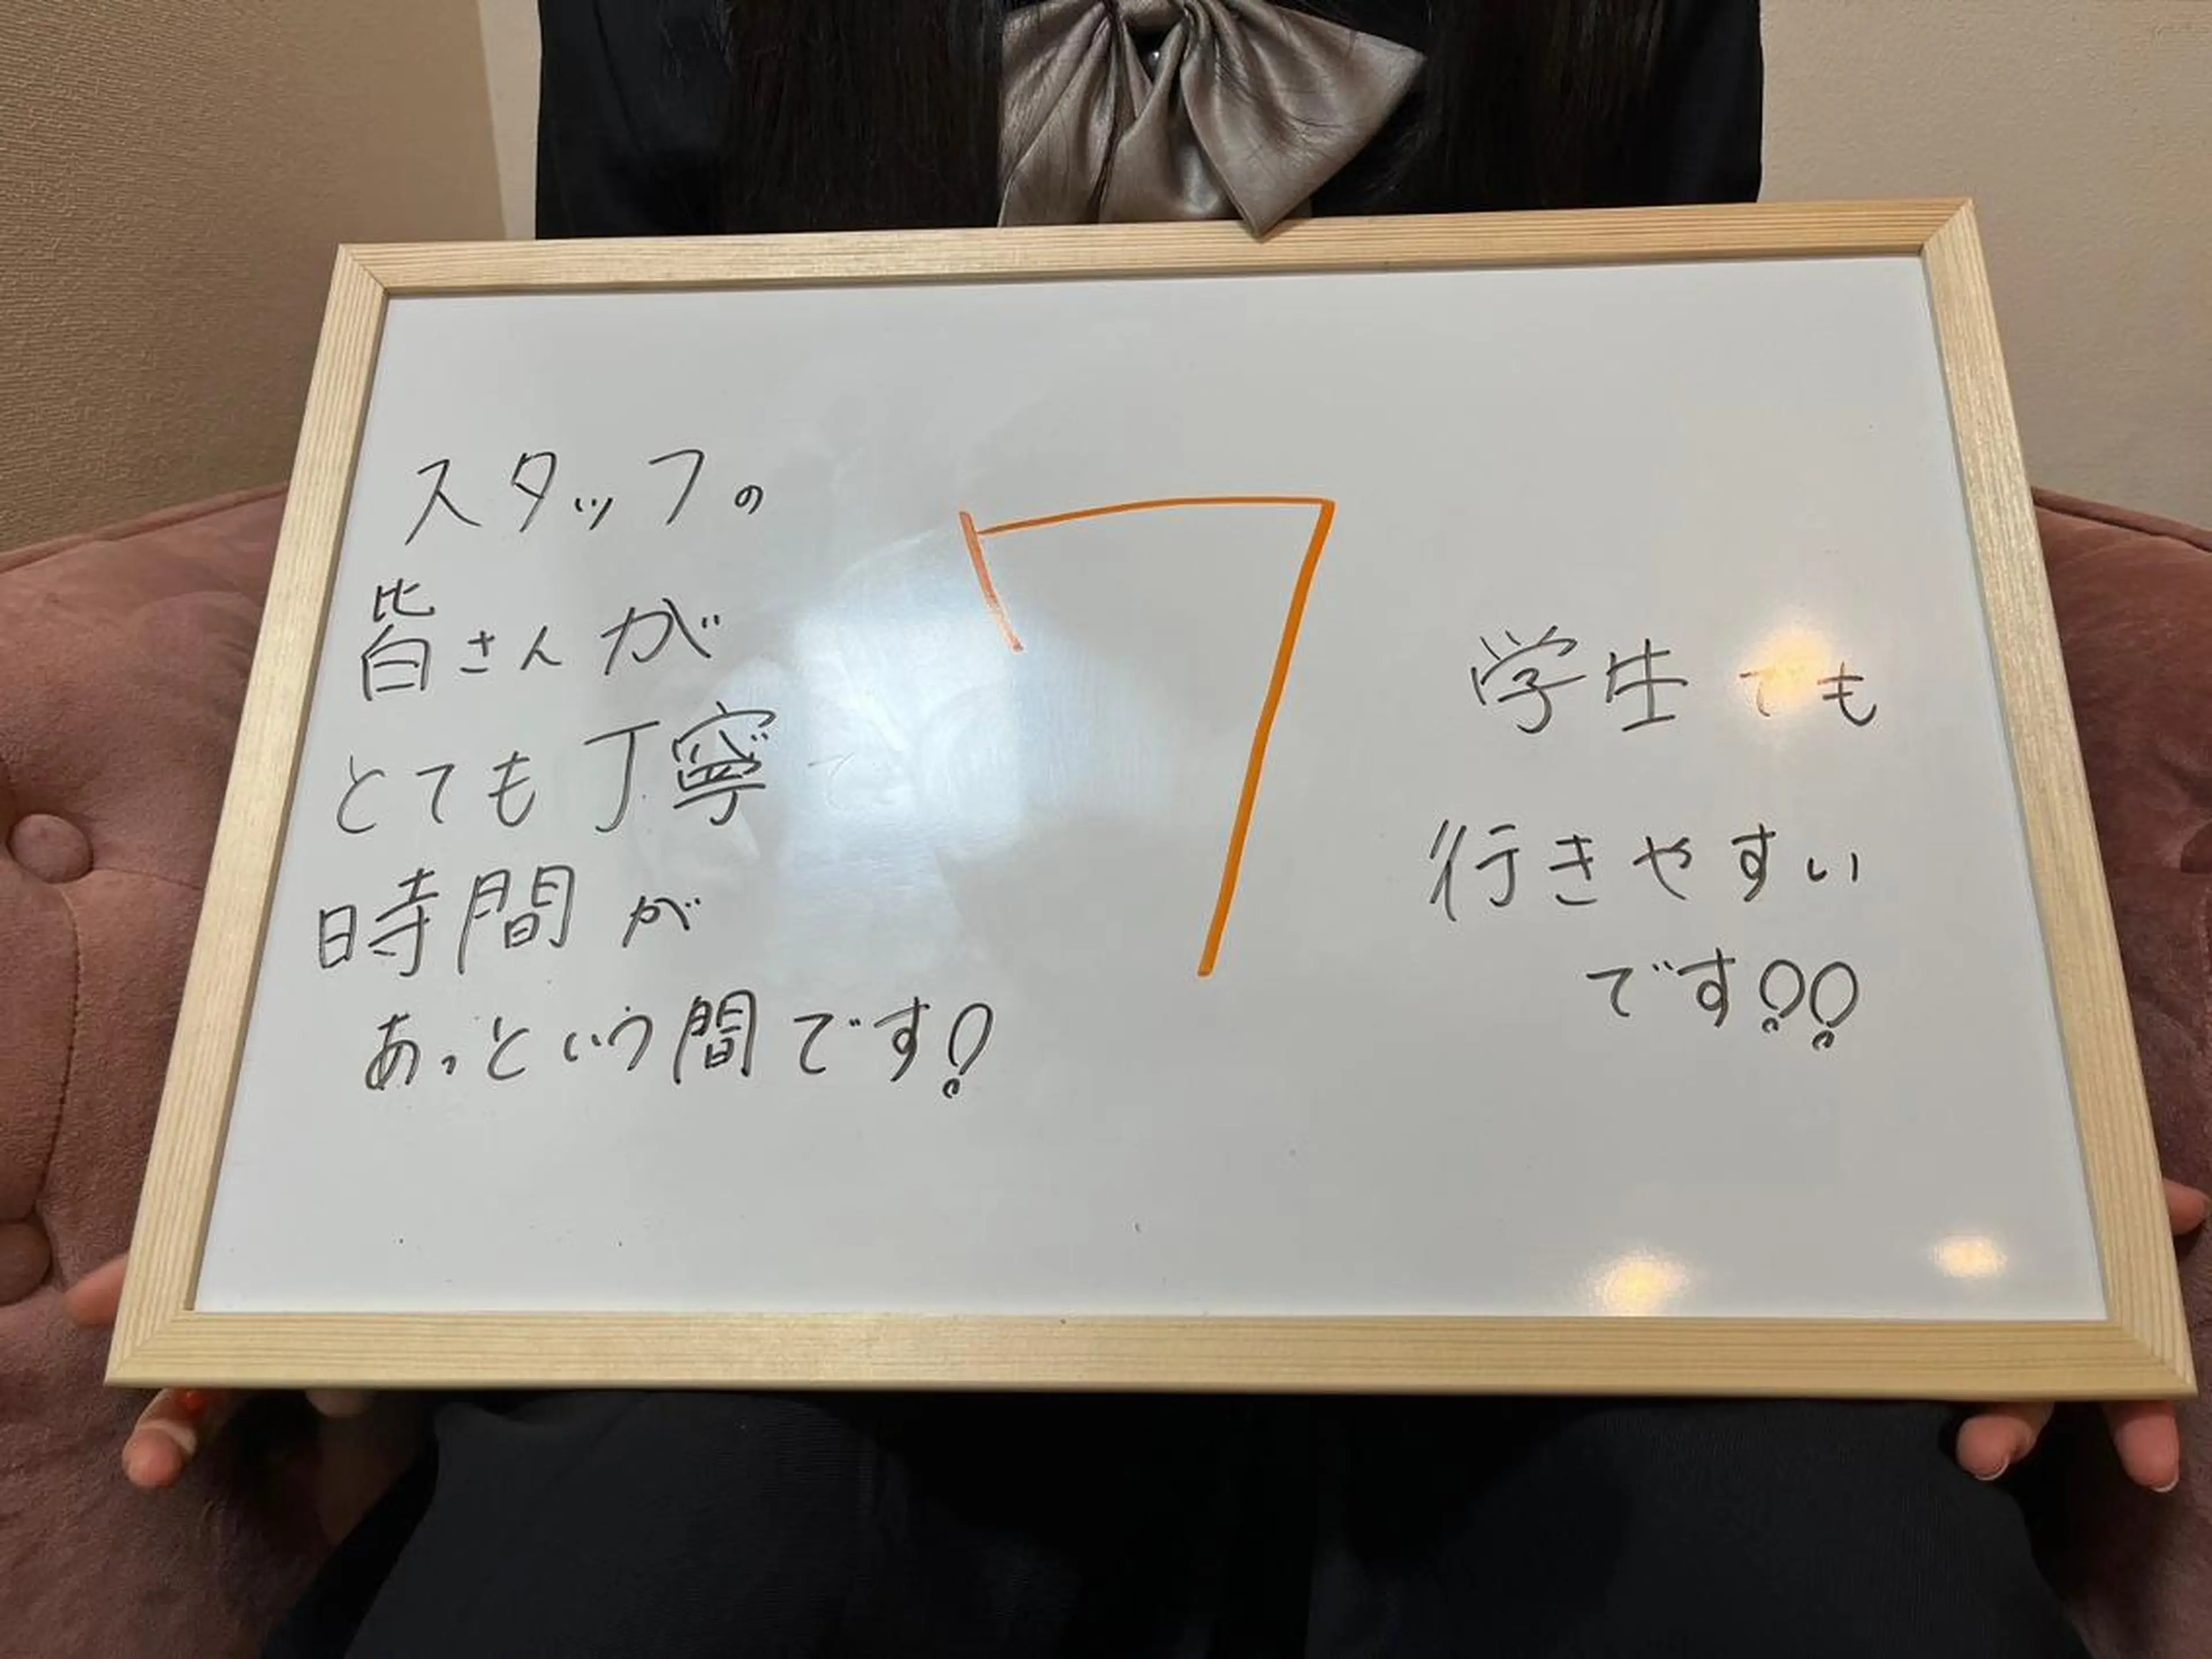 スタッフの
皆さんが
とても丁寧で
時間が
あっという間です!
7
学生でも
行きやすい
です!!